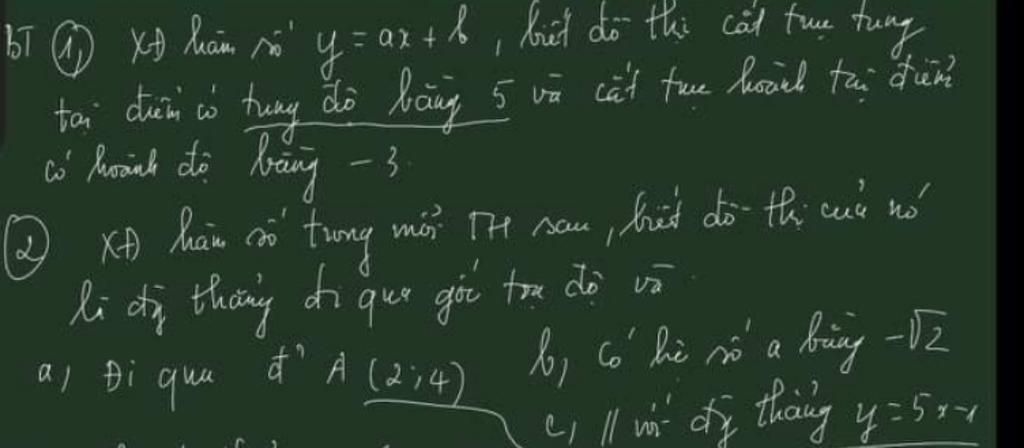 BT 1, XĐ hàm số y = ax + b, biết đồ thị cắt trục tung
tại điểm có tung độ bằng 5 và cắt trục hoành tại điểm
có hoành độ bằng -3.
2 XĐ hàm số trong mỗi TH sau, biết đồ thị của nó
là đg thẳng đi qua gốc tọa độ và
a, Đi qua đ' A (2;4)
b, Có hệ số a bằng -√2
c, // với đg thẳng y = 5x-1